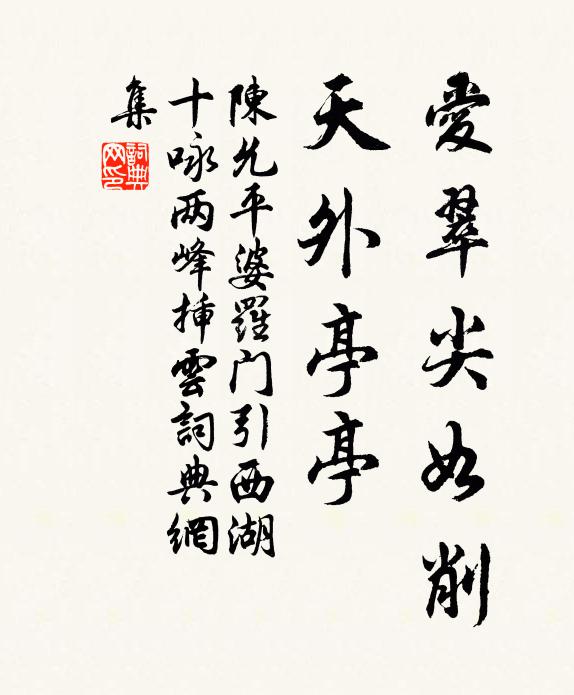 愛翠尖如削
天外亭亭
陳允平婆羅门引西湖
十咏两峰插雲詞典網
集
詞典
网印